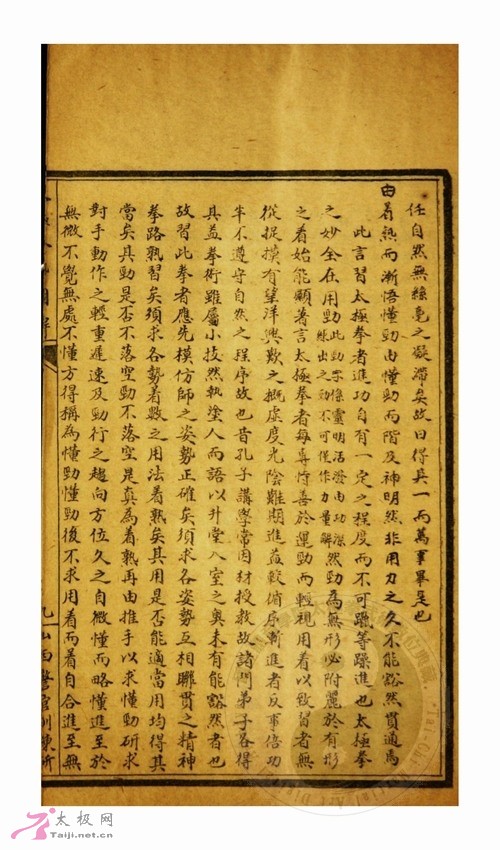 任自然無絲毫之凝滯矣故曰得其一而萬事畢是也
由着熟而漸悟懂勁由懂勁而階及神明然非用力之久不能豁然貫通焉
此言習太極拳者進功自有一定之程度而不可躐等躁進也太極拳
之妙全在用勁此勁字係靈明活潑由功深練出之勁不可僅作力量解然勁為無形必附麗於有形
之着始能顯著言太極拳者每專恃善於運勁而輕視用着以致習者無
從捉摸有望洋興歎之概虛度光陰難期進益較循序漸進者反事倍功
半不遵守自然之程序故也昔孔子講學常因材授教故諸門弟子各得
其益拳術雖屬小技然執塗人而語以升堂入室之奧未有能豁然者也
故習此拳者應先模仿師之姿勢正確矣須求各姿勢互相聯貫之精神
拳路熟習矣須求各勢着數之用法着熟矣其用是否能適當用均得其
當矣其勁是否不落空勁不落空是真為着熟再由推手以求懂勁研求
對手動作之輕重遲速及勁行之趨向方位久之自微懂而略懂進至於
無微不覺無處不懂方得稱為懂勁懂勁後不求用着而着自合進至無
山西警官訓練所
太极网
Taiji.net.cn